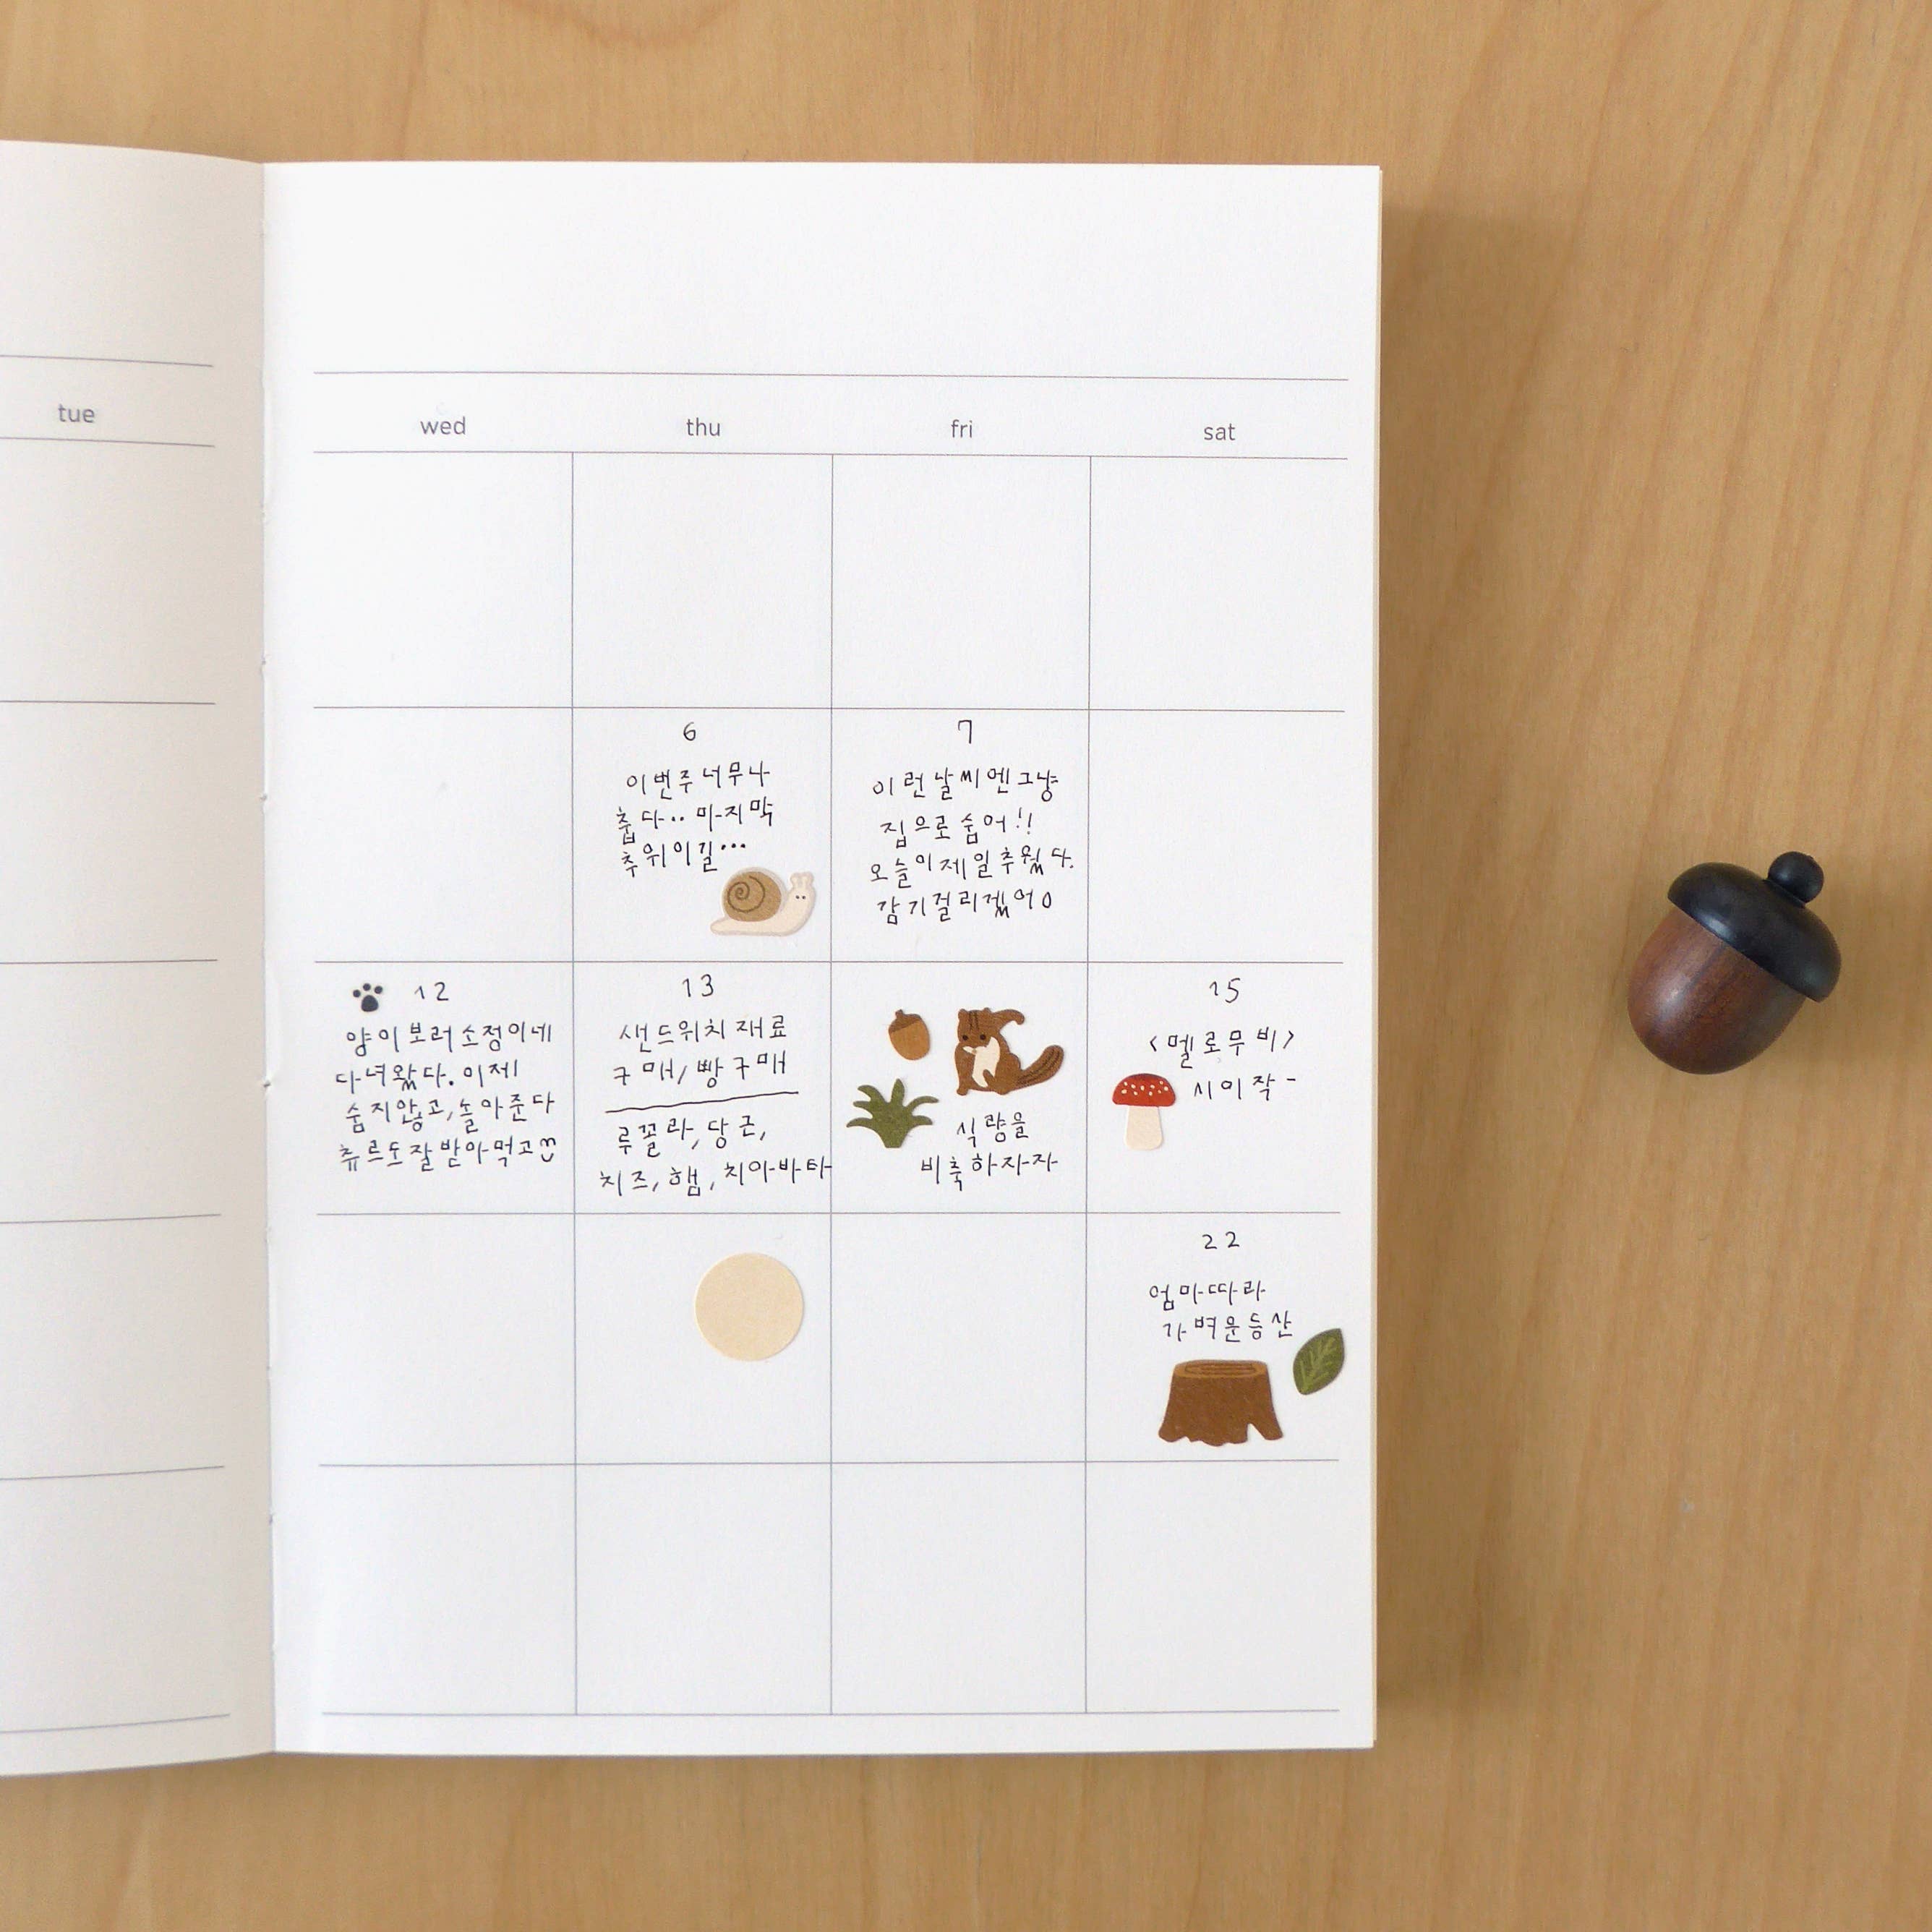 tue
wed
thu
fri
sat
6
이번주 너무나
춥다.. 마지막
추위이길...
7
이런날씨엔그냥
집으로 숨어!!
오늘이제일추웠다.
감기걸리겠어0
12
양이보러소정이네
다녀왔다. 이제
숨지않고, 놀아준다
츄르도잘받아먹고
13
샌드위치 재료
구매/빵구매
루꼴라, 당근,
치즈, 햄, 치아바타
식량을
비축하자자
15
<멜로무비>
시이작-
22
엄마따라
가벼운등산